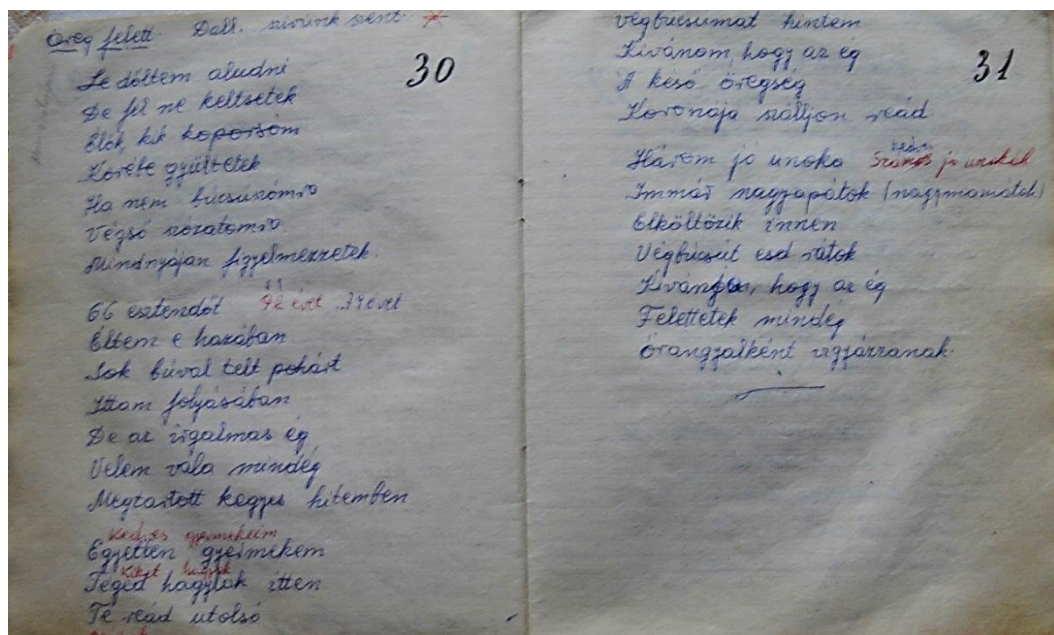 Öreg felett. Dall. szivünk szent *
30
Le dőltem aludni
De fel ne keltsetek
Élők, kik koporsóm
Körébe gyűltetek
Ha nem búcsúzómra
Végső szózatomra
Mindnyájan figyelmezzetek.
66 esztendőt 72 évet 74 évet
Éltem e hazában
Sok búval telt pohárt
Ittam folyásában
De az irgalmas ég
Velem vala mindég
Megtartott kegyes hitemben
Kedves gyermekeim
Egyetlen gyermekem
Kiket hagyok
Téged hagylak itten
Te reád utolsó
végbúcsumat hintem
31
Kivánom, hogy az ég
A késő öregség
Koronája szálljon reád
Három jó unoka Számos kedves jó unokák
Immár nagyapátok (nagymamátok)
Elköltözik innen
Végbúcsút esd rátok
Kiván, hogy az ég
Felettetek mindég
Őrangyalként vigyázzanak.